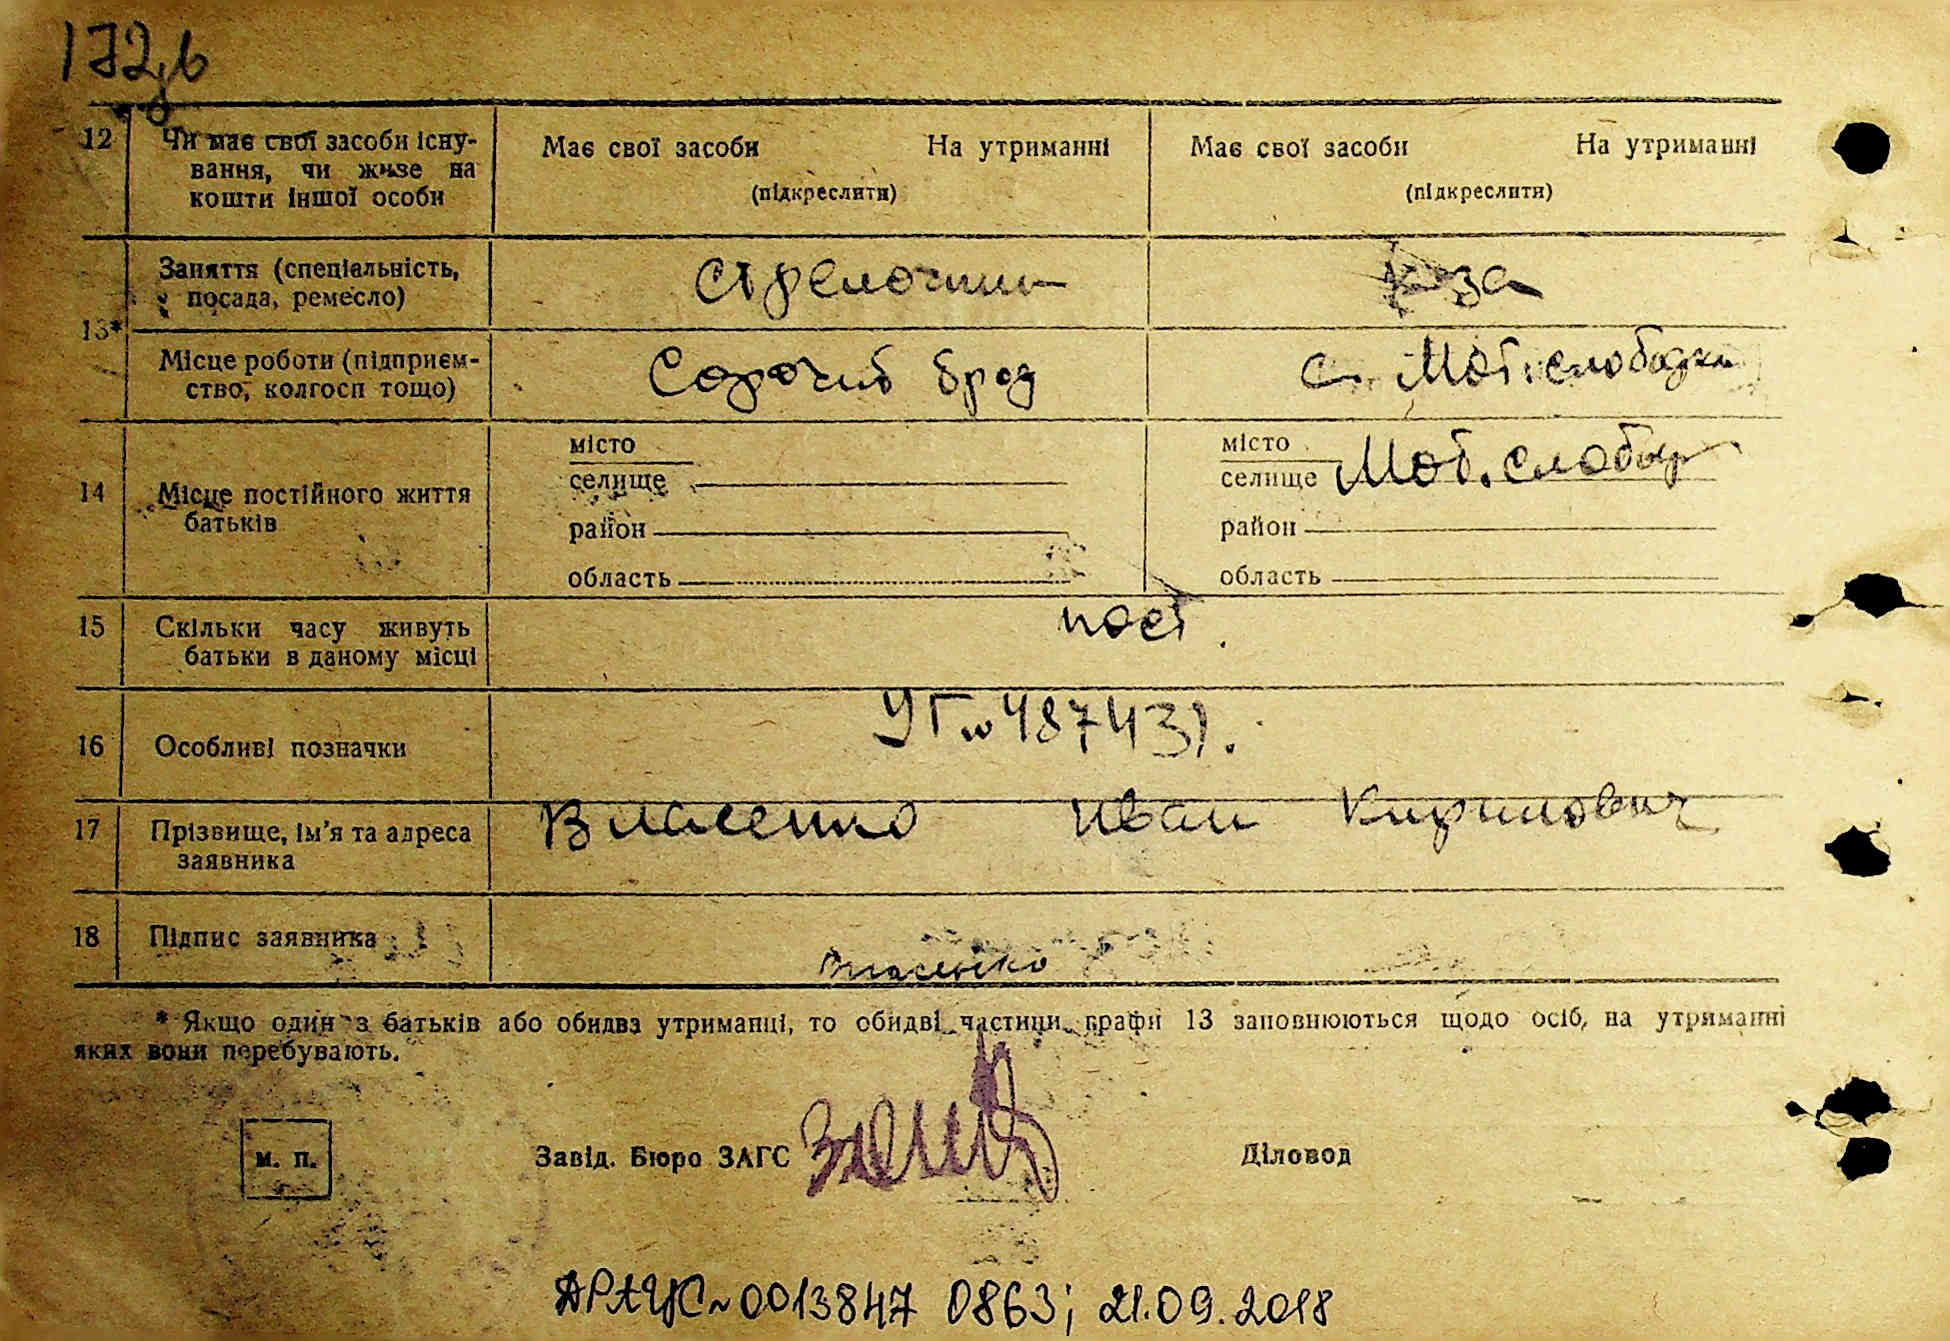 12 Чи має свої засоби існу-
вання, чи живе на
кошти іншої особи
Має свої засоби На утриманні
(підкреслити)
Має свої засоби На утриманні
(підкреслити)
13*
Заняття (спеціальність,
посада, ремесло)
Стрелочник
к-за
Місце роботи (підприєм-
ство, колгосп тощо)
Сорочий брод
с. Мот. слободки
14 Місце постійного життя
батьків
місто
селище
район
область
місто
селище Мот. слобод
район
область
15 Скільки часу живуть
батьки в даному місці
пост.
16 Особливі позначки
УГ № 487431.
17 Прізвище, ім'я та адреса
заявника
Власенко Иван Кирилович
18 Підпис заявника
Власенко
* Якщо один з батьків або обидва утриманці, то обидві частини графи 13 заповнюються щодо осіб, на утриманні
яких вони перебувають.
м. п.
Завід. Бюро ЗАГС
Діловод
ДРАЦС~0013847 0863; 21.09.2018